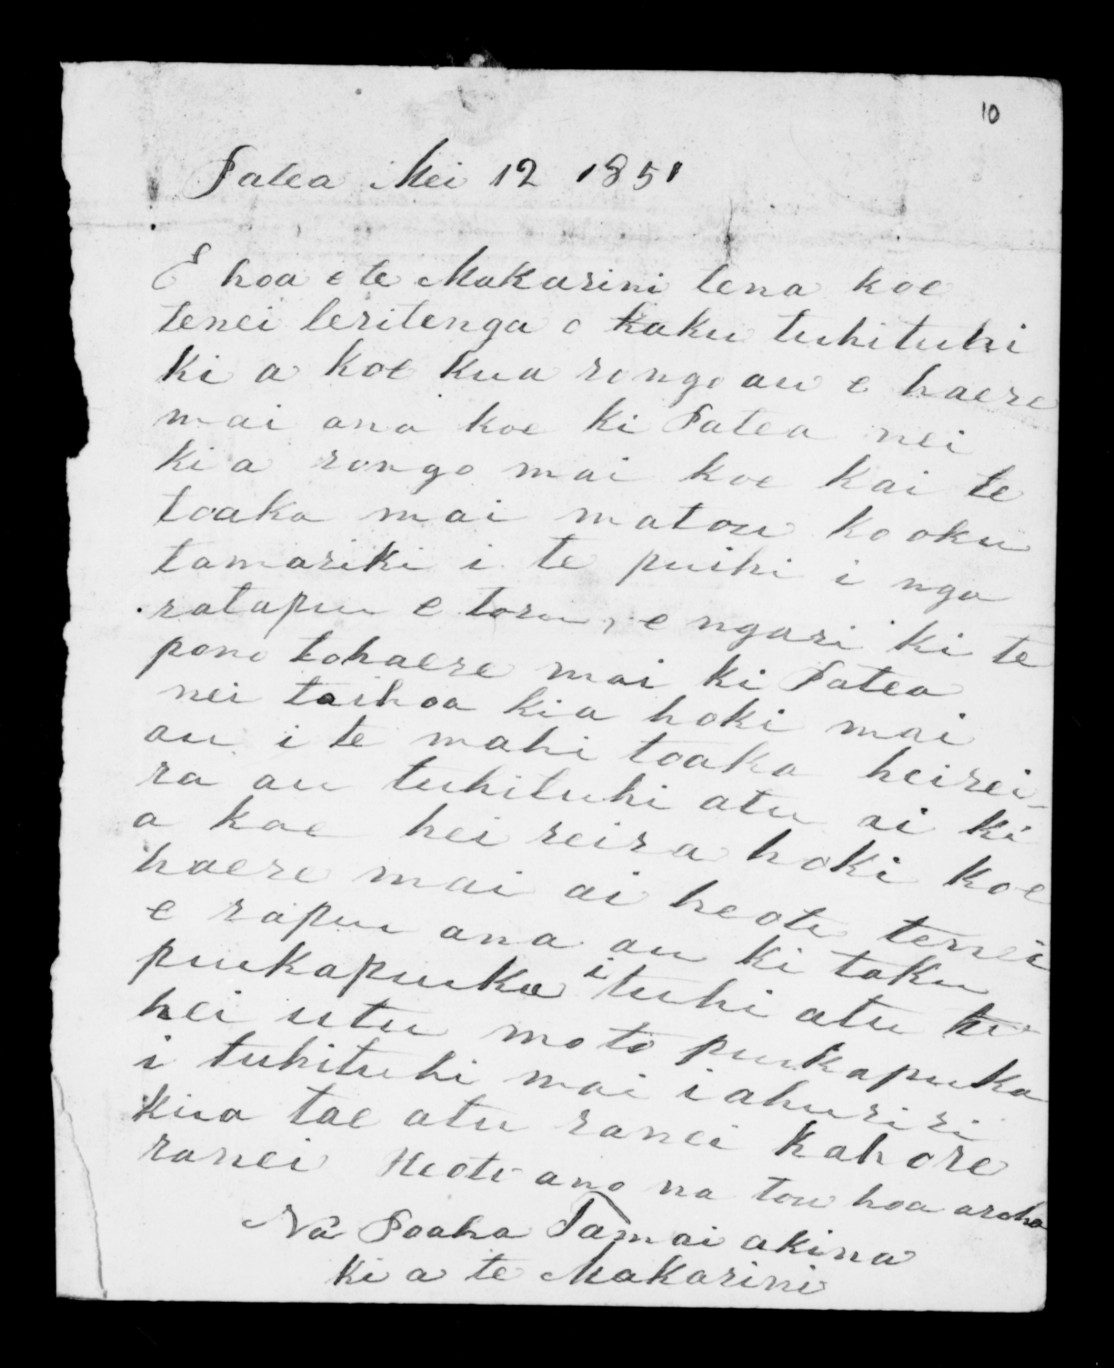 10
Patea Mei 12 1851
E hoa e te Makarini tena koe
tenei teritenga o kaku tuhituhi
ki a koe kua rongo au e haere
mai ana koe ki Patea nei
kia rongo mai koe kai te
toaka mai matou ko oku
tamariki i te puihi i nga
ratapu e toru, e ngari ki te
pono tohaere mai ki Patea
nei taihoa kia hoki mai
au i te mahi toaka heirei-
ra au tuhituhi atu ai ki
a koe hei reira hoki koe
haere mai ai heoti tenei
e rapu ana au ki taku
pukapuka i tuhi atu ki
hei utu moto pukapuka
i tuhituhi mai i ahuriri
kua tae atu ranei kahore
ranei Heoti ano na tou hoa aroha
Na Paaha Tamai akina
ki a te Makarini